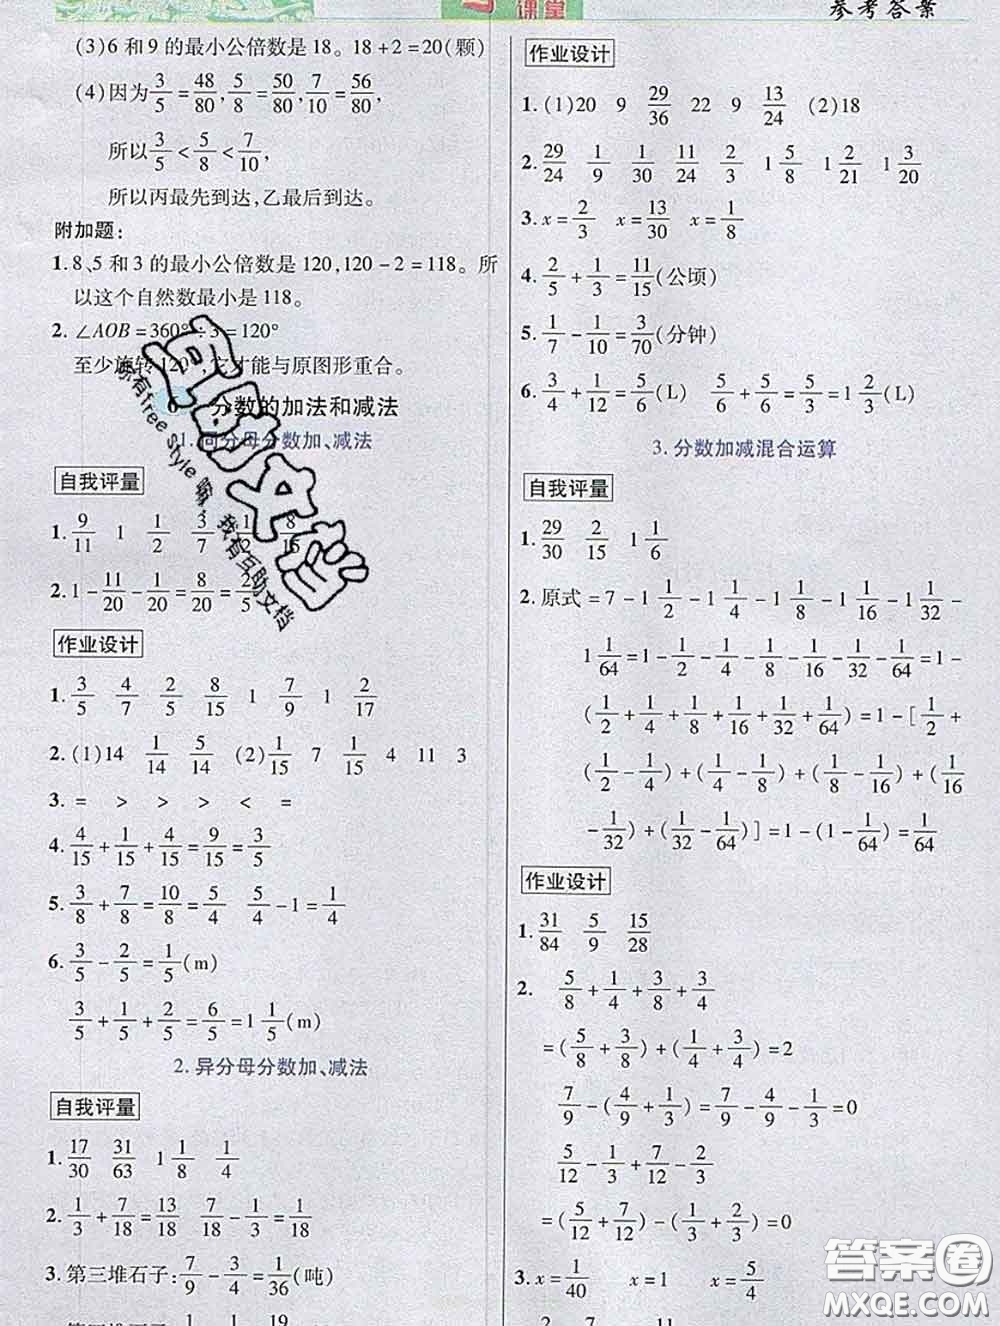 课堂
参考答案
(3)6 和 9 的最小公倍数是 18。18+2=20(颗)
(4)因为 3/5=48/80, 5/8=50/80, 7/10=56/80,
所以 3/5<5/8<7/10,
所以丙最先到达,乙最后到达。
附加题:
1.8、5 和 3 的最小公倍数是 120,120-2=118。所
以这个自然数最小是 118。
2. ∠AOB=360°÷3=120°
至少旋转 120°,它才能与原图形重合。
分数的加法和减法
1. 同分母分数加、减法
自我评量
1. 9/11 1 1/2 3/7 1/2 8/15
2. 1-11/20-1/20=8/20=2/5
作业设计
1. 3/5 4/7 2/5 8/15 1 7/9 1 2/17
2. (1)14 1/14 5/14 (2)1/15 7 1/15 4 11 3
3. = > > > < =
4. 4/15+1/15+4/15=9/15=3/5
5. 3/8+7/8=10/8=5/4 5/4-1=1/4
6. 3/5-2/5=1/5(m)
3/5+1/5+2/5=6/5=1 1/5(m)
2. 异分母分数加、减法
自我评量
1. 17/30 31/63 1 1/8 1/4
2. 1/3+7/18=13/18 7/18-1/3=1/18
3. 第三堆石子:7/9-3/4=1/36(吨)
作业设计
1. (1)20 9 29/36 22 9 13/24 (2)18
2. 29/24 1/9 1/30 11/24 2/3 1 5/8 1 2/21 1 3/20
3. x=2/3 x=13/30 x=1/8
4. 2/5+1/3=11/15(公顷)
5. 1/7-1/10=3/70(分钟)
6. 3/4+1/12=5/6(L) 5/6+5/6=1 2/3(L)
3. 分数加减混合运算
自我评量
1. 29/30 2/15 1 1/6
2. 原式=7-1 1/2-1 1/4-1 1/8-1 1/16-1 1/32-
1 1/64=1-1/2-1/4-1/8-1/16-1/32-1/64=1-
(1/2+1/4+1/8+1/16+1/32+1/64)=1-[1/2+
(1/2-1/4)+(1/4-1/8)+(1/8-1/16)+(1/16
-1/32)+(1/32-1/64)]=1-(1-1/64)=1/64
作业设计
1. 31/84 5/9 15/28
2. 5/8+1/4+3/8+3/4
=(5/8+3/8)+(1/4+3/4)=2
7/9-(4/9+1/3)=7/9-4/9-1/3=0
5/12-1/3+7/12-2/3
=(5/12+7/12)-(1/3+2/3)=0
3. x=1/40 x=1 x=5/4
你有free style 嘛，我有互助文档
答案圈
MXQE.COM